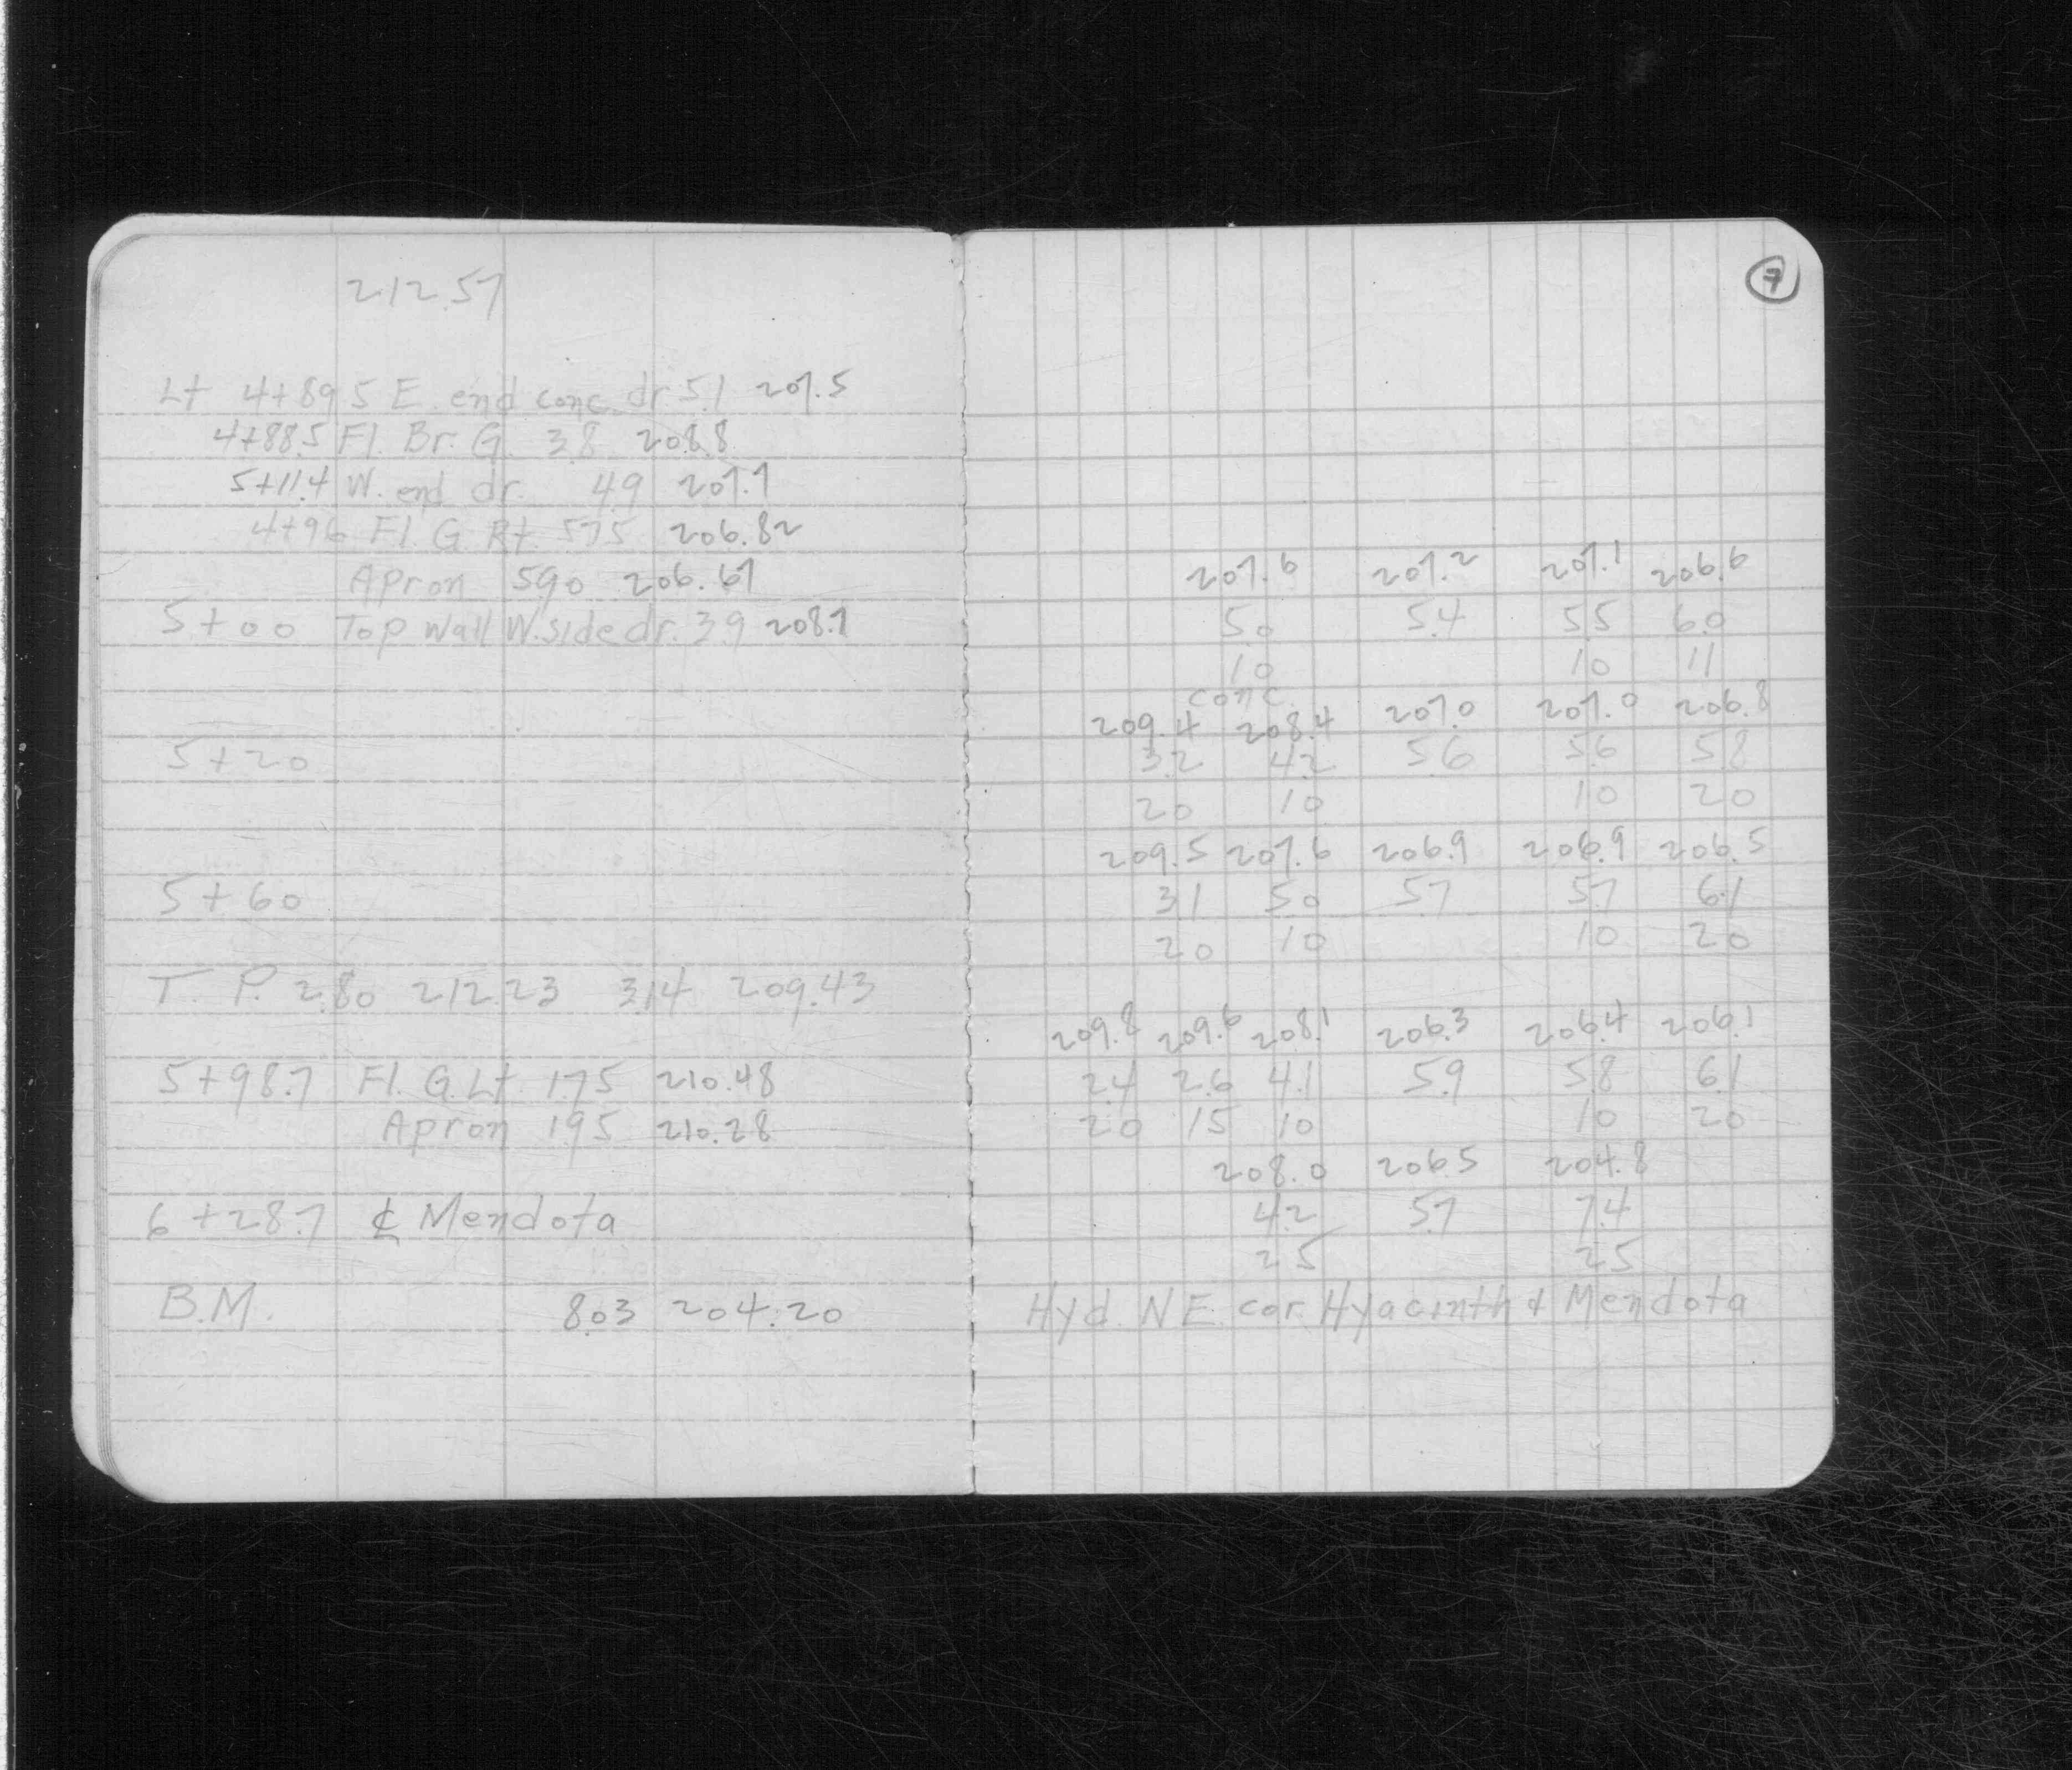 212.57
Lt 4+89.5 E. end conc. dr 5.1 207.5
4+88.5 Fl. Br. G. 3.8 208.8
5+11.4 W. end dr. 4.9 207.7
4+96 Fl. G. Rt. 5.75 206.82
Apron 5.90 206.67
5+00 Top Wall W. side dr. 3.9 208.7
5+20
5+60
T. P. 2.80 212.23 3.14 209.43
5+98.7 Fl. G. Lt. 1.75 210.48
Apron 1.95 210.28
6+28.7 ℄ Mendota
B.M. 8.03 204.20
7
207.6 207.2 207.1 206.6
5.0 5.4 5.5 6.0
10 10 11
conc.
209.4 208.4 207.0 207.0 206.8
3.2 4.2 5.6 5.6 5.8
20 10 10 20
209.5 207.6 206.9 206.9 206.5
3.1 5.0 5.7 5.7 6.1
20 10 10 20
209.8 209.6 208.1 206.3 206.4 206.1
2.4 2.6 4.1 5.9 5.8 6.1
20 15 10 10 20
208.0 206.5 204.8
4.2 5.7 7.4
25 25
Hyd. N E. cor. Hyacinth & Mendota